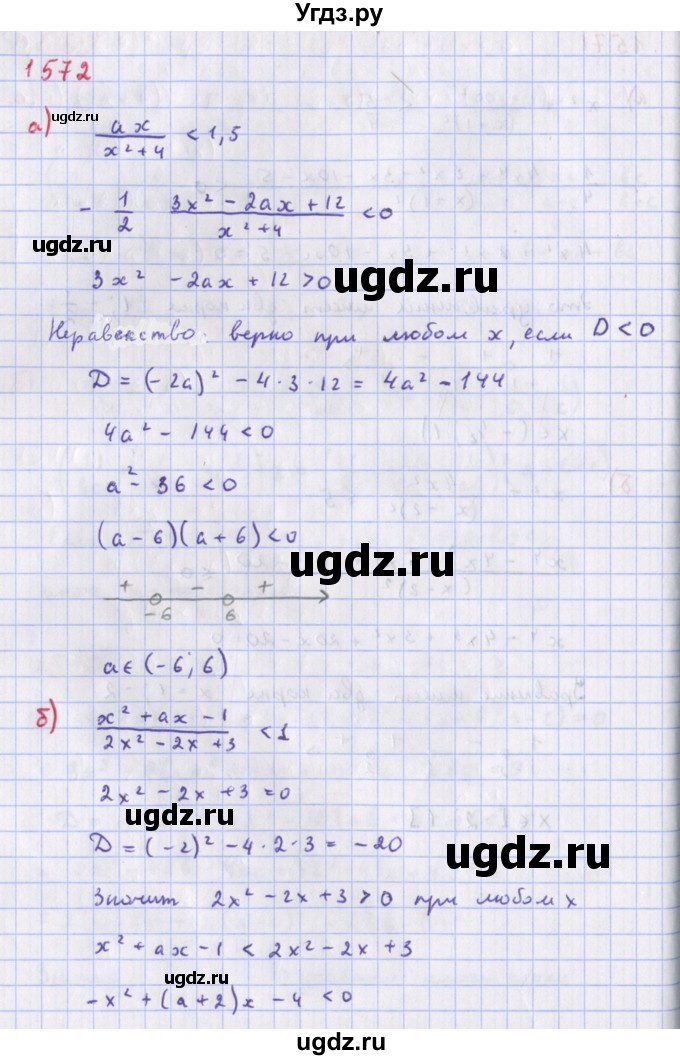 Угдз.ру
1572
ugdz.ru
а) ax / (x² + 4) < 1,5
- 1/2 (3x² - 2ax + 12) / (x² + 4) < 0
ugdz.ru
ugdz.ru
3x² - 2ax + 12 > 0
ugdz.ru
Неравенство верно при любом x, если D < 0
D = (-2a)² - 4·3·12 = 4a² - 144
ugdz.ru
4a² - 144 < 0
a² - 36 < 0
(a - 6)(a + 6) < 0
ugdz.ru
ugdz.ru
+ - +
-6 6
ugdz.ru
a ∈ (-6; 6)
ugdz.ru
б) (x² + ax - 1) / (2x² - 2x + 3) < 1
2x² - 2x + 3 = 0
ugdz.ru
D = (-2)² - 4·2·3 = -20
ugdz.ru
Значит 2x² - 2x + 3 > 0 при любом x
x² + ax - 1 < 2x² - 2x + 3
ugdz.ru
-x² + (a + 2)x - 4 < 0
ugdz.ru
Угдз.ру